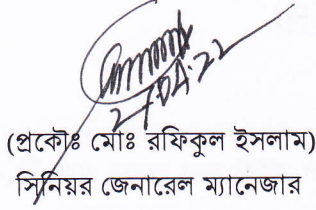 27.04.22
(প্রকৌঃ মোঃ রফিকুল ইসলাম)
সিনিয়র জেনারেল ম্যানেজার